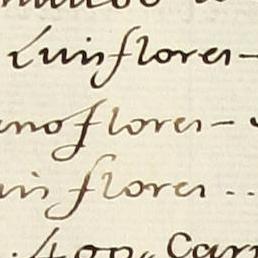 Luis flores -
no flores -
is flores ..
400,, Car